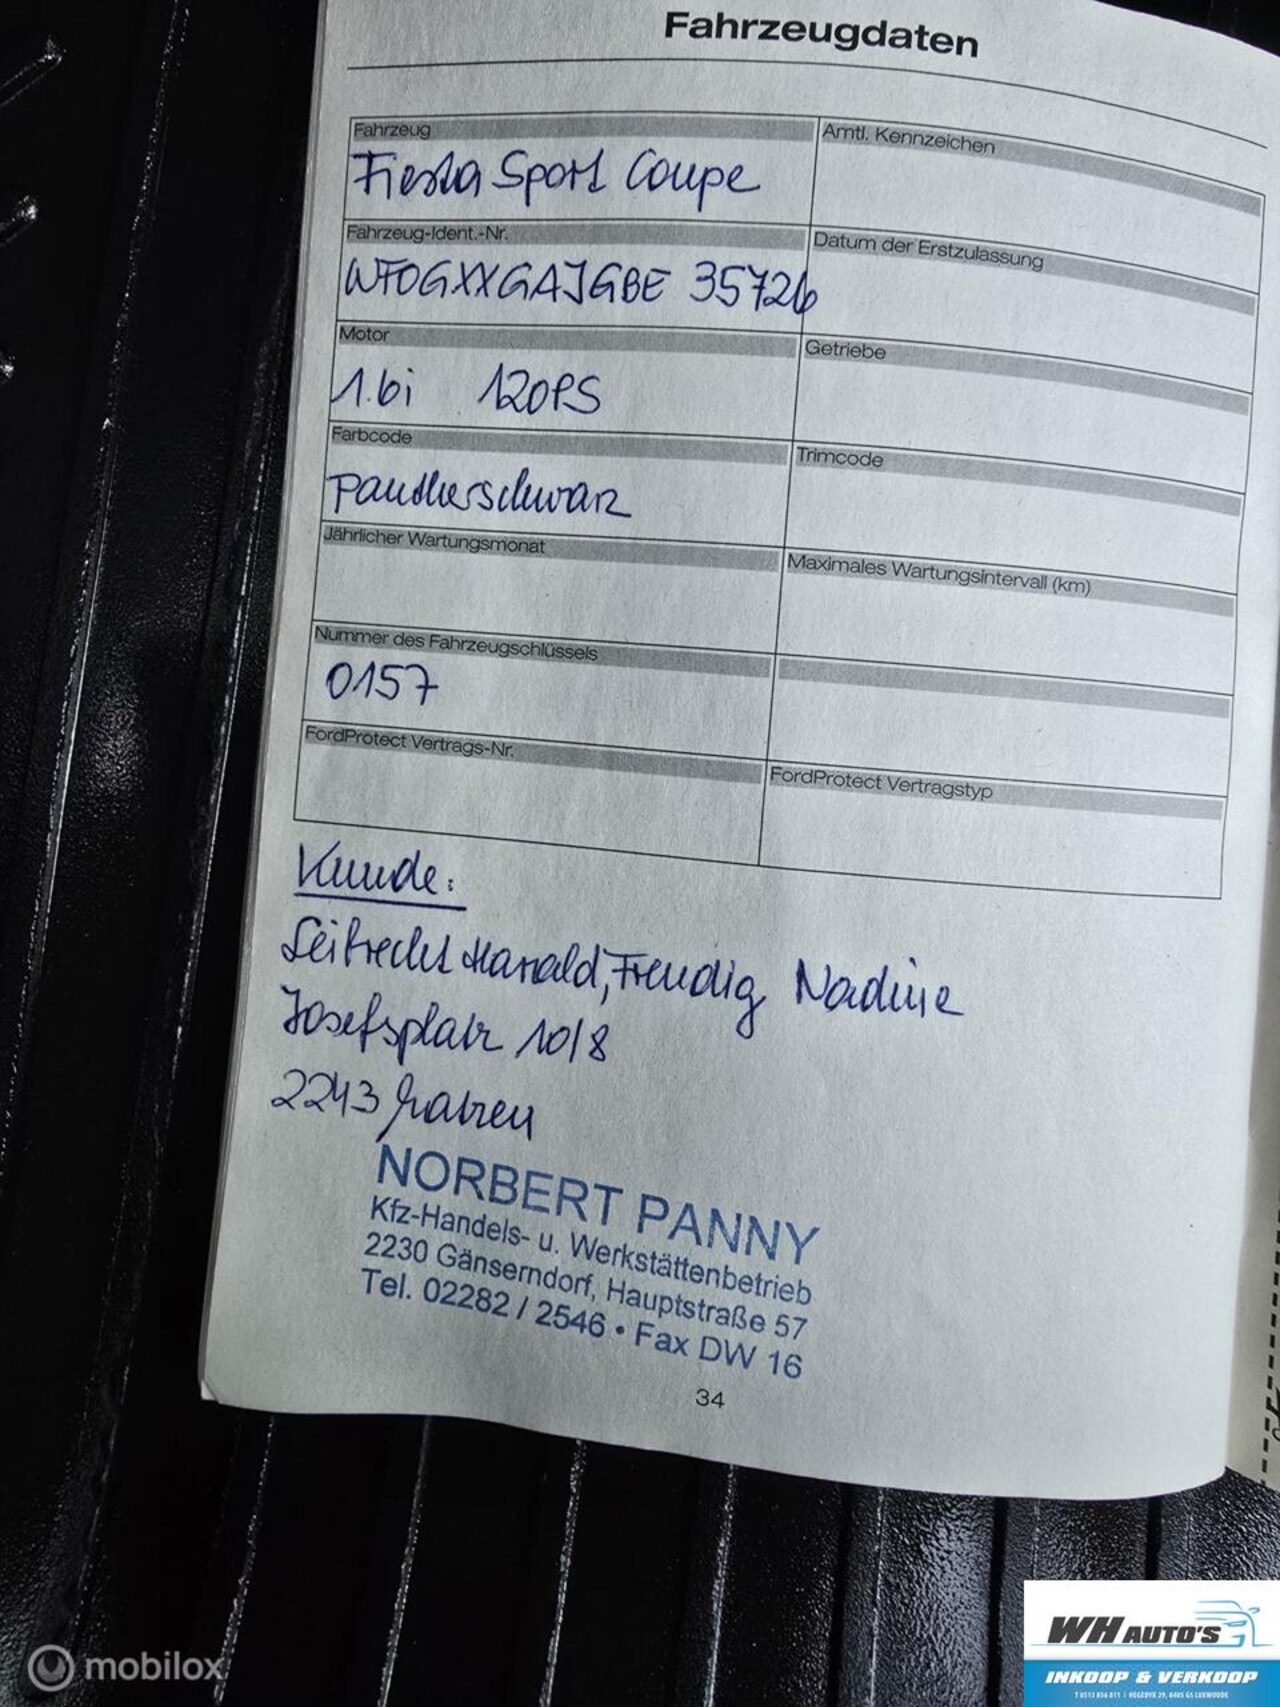 Fahrzeugdaten
Fahrzeug
Amtl. Kennzeichen
Fiesta Sport Coupe
Fahrzeug-Ident.-Nr.
Datum der Erstzulassung
WF0GXXGAJGBE 35726
Motor
Getriebe
1.6i 120PS
Farbcode
Trimcode
Pantherschwarz
Jährlicher Wartungsmonat
Maximales Wartungsintervall (km)
Nummer des Fahrzeugschlüssels
0157
FordProtect Vertrags-Nr.
FordProtect Vertragstyp
Kunde:
Harald, Freudig Nadine
Josefsplatz 10/8
2243 Matzen
NORBERT PANNY
Kfz-Handels- u. Werkstättenbetrieb
2230 Gänserndorf, Hauptstraße 57
Tel. 02282 / 2546 • Fax DW 16
34
WH AUTO'S
INKOOP & VERKOOP
T 0513 856 811 | HEGEDYK 29, 8405 GS LUXWOUDE
mobilox